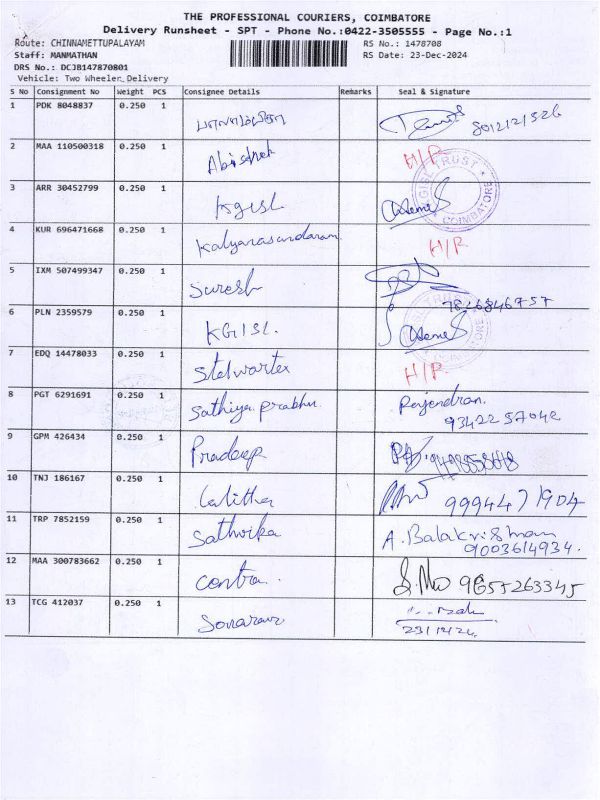 THE PROFESSIONAL COURIERS, COIMBATORE
Delivery Runsheet - SPT - Phone No.:0422-3505555 - Page No.:1
Route: CHINNAMETTUPALAYAM RS No.: 1478708
Staff: MANMATHAN RS Date: 23-Dec-2024
DRS No.: DCJB147870801
Vehicle: Two Wheeler_Delivery
S No Consignment No Weight PCS Consignee Details Remarks Seal & Signature
1 PDK 8048837 0.250 1
2 MAA 110500318 0.250 1 Abishek H/R
3 ARR 30452799 0.250 1 Kgisl
GISL TRUST COIMBATORE
4 KUR 696471668 0.250 1 Kalyanasundaram H/R
5 IXM 507499347 0.250 1 Suresh
6 PLN 2359579 0.250 1 KGISL
7 EDQ 14478033 0.250 1 Stelwartex H/R
8 PGT 6291691 0.250 1 Sathiya prabhu Rajendran
9342257042
9 GPM 426434 0.250 1 Pradeep
10 TNJ 186167 0.250 1 Lalitha 9994471904
11 TRP 7852159 0.250 1 Sathvika A. Balakrishnan
9003614934.
12 MAA 300783662 0.250 1 9655263345
13 TCG 412037 0.250 1
23/12/24